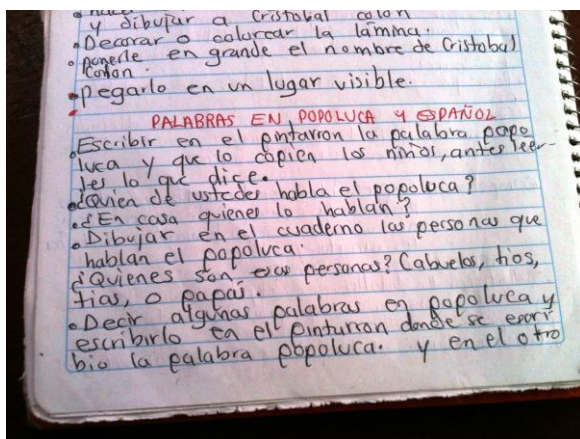 y dibujar a Cristobal colon
• Decorar o colorear la lámina.
• ponerle en grande el nombre de Cristobal
Colon.
• pegarlo en un lugar visible.
PALABRAS EN POPOLUCA Y ESPAÑOL
• Escribir en el pintarron la palabra popo
luca y que lo copien los niños, antes leer-
les lo que dice.
• ¿Quien de ustedes habla el popoluca?
• ¿En casa quienes lo hablan?
• Dibujar en el cuaderno las personas que
hablan el popoluca.
¿Quienes son esas personas? Cabuelos, tios,
tias, o papás.
• Decir algunas palabras en popoluca y
escribirlo en el pinturron donde se escri
bio la palabra popoluca. y en el otro